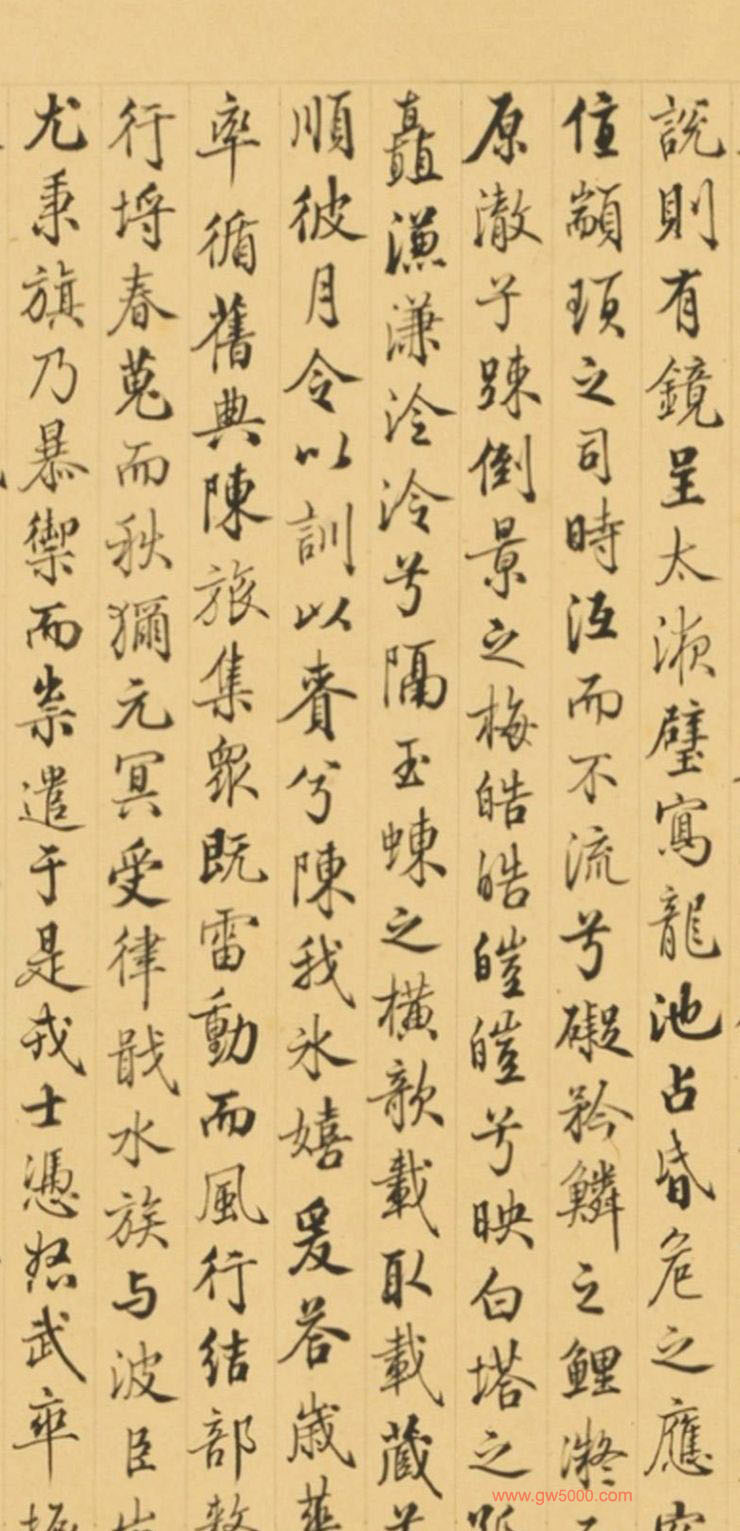 說則有鏡呈太液璧寫龍池占昏危之應
值顓頊之司時沍而不流兮礙矜鱗之鯉凝
原澈兮踈倒景之梅皓皓皚皚兮映白塔之
矗溓溓泠泠兮隔玉蝀之橫歌載取載蔵
順彼月令以訓以賚兮陳我氷嬉爰荅歲
率循舊典陳旅集衆既雷動而風行結部
行埒春蒐而秋獮元冥受律戢水族与波臣
尤秉旗乃暴禦而祟遣于是戎士憑怒武卒
www.gw5000.com